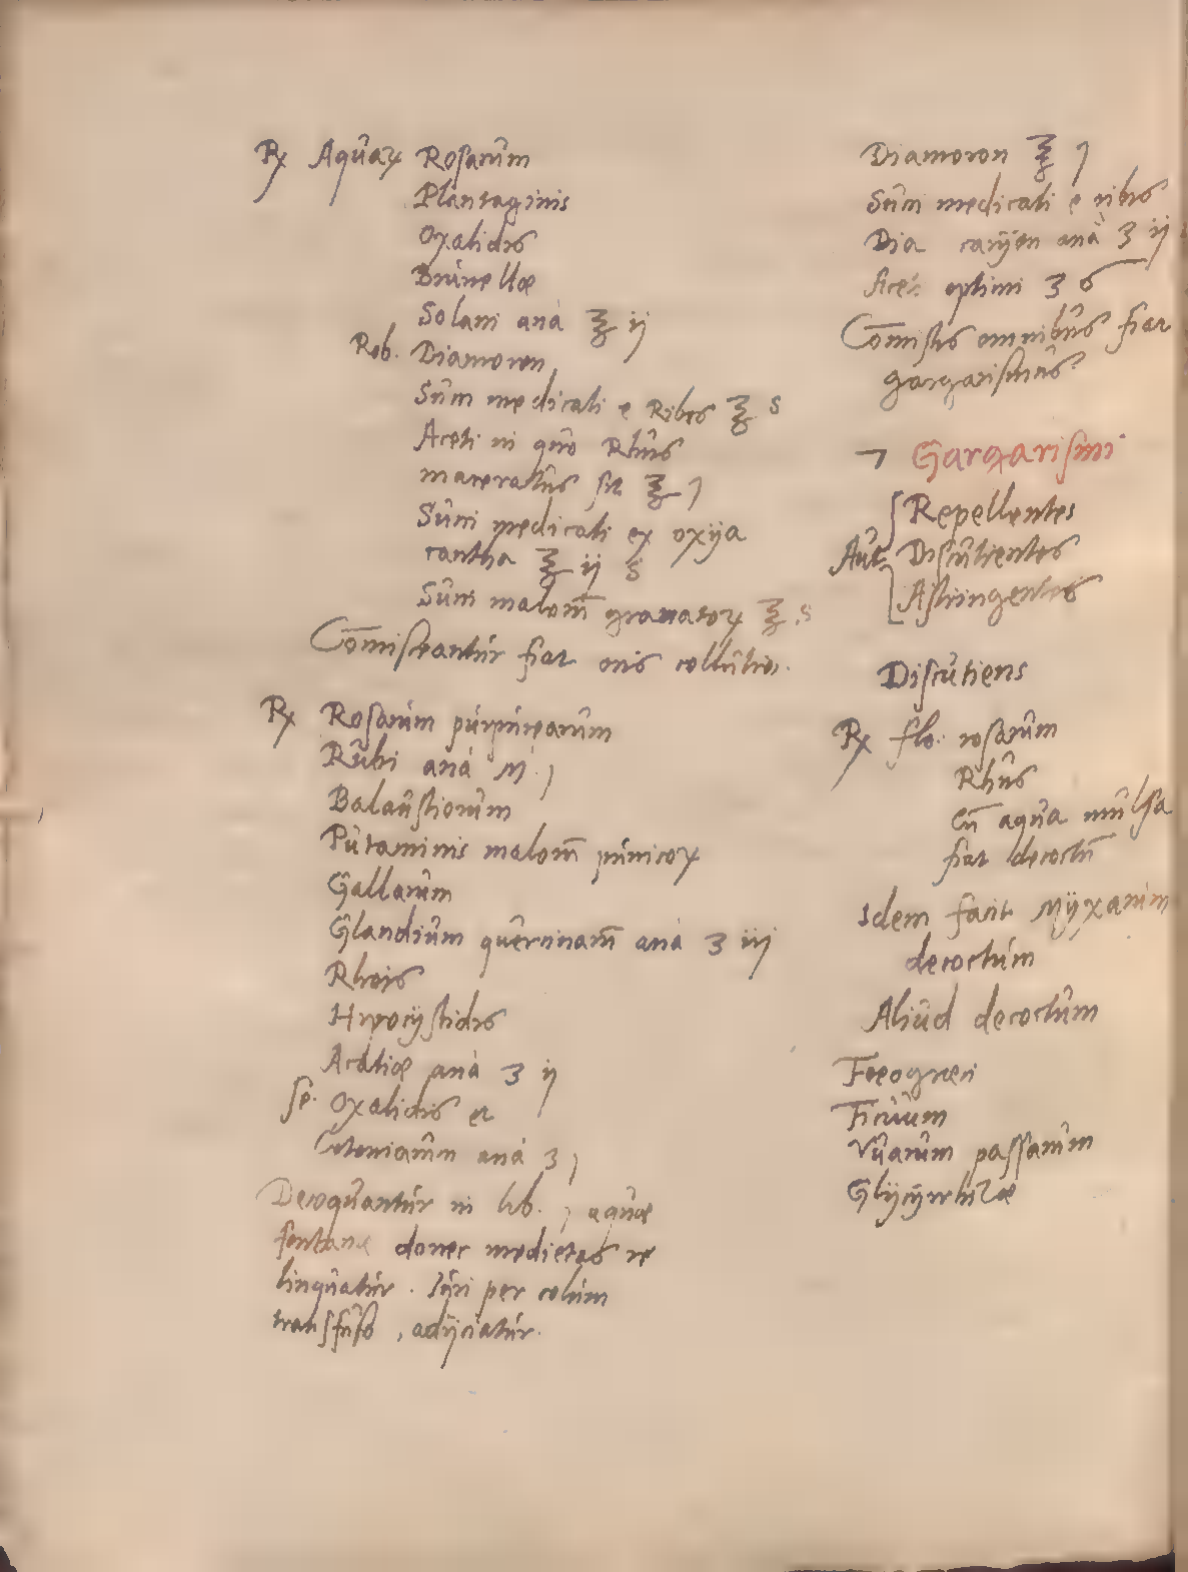 ℞ Aquaꝝ Rosarum
Plantaginis
Oxalidis
Brunellæ
Solani ana ℥ ij
Rob. Diamoron
Succi medicati e Ribes ℥ s
Aceti in quo Rhus
maceratus sit ℥ j
Succi medicati ex oxya
cantha ℥ ij s
Succi malom̄ granatoꝝ ℥ s
Com̄isceantur fiat oris collutio.
℞ Rosarum purpurearum
Rubi ana M. j
Balaustiorum
Putaminis malom̄ punicoꝝ
Gallarum
Glandium quernnam̄ ana ʒ iij
Rhois
Hypocystidis
Acatiæ ana ʒ ij
se. Oxalidis et
Cotoniarum ana ʒ j
Decoquantur in lib. j aquæ
fontanæ donec medietas re
linquatur. Iuri per colum
transfuso, adijciatur.
Diamoron ℥ j
Succi medicati e ribes
Dia caryon ana ʒ ij
Aceti optimi ʒ ß
Com̄istis omnibus fiat
gargarismus
⁊ Gargarismi
Repellentes
Aut Discutientes
Astringentes
Discutiens
℞ flo. rosarum
Rhus
Cū aqua mulsa
fiat decoctū
Idem facit Myxarum
decoctum
Aliud decoctum
Foeogræci
Ficuum
Vuarum passarum
Glycyrrhizæ